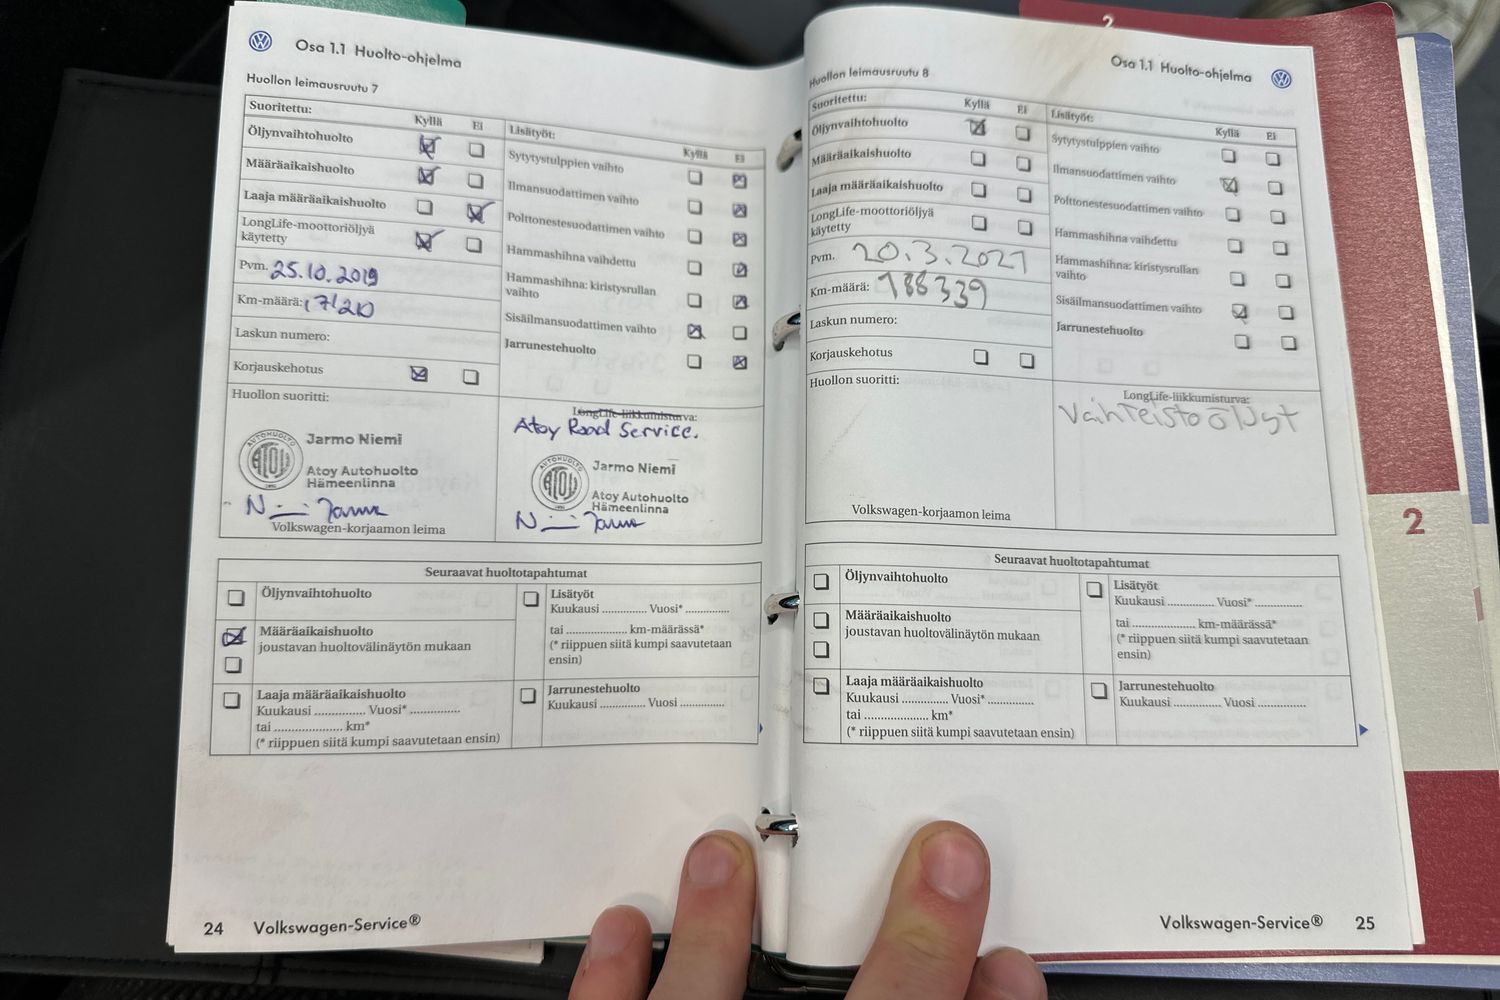 Osa 1.1 Huolto-ohjelma
Huollon leimausruutu 7
Suoritettu:
Kyllä Ei
Öljynvaihtohuolto
Määräaikaishuolto
Laaja määräaikaishuolto
LongLife-moottoriöljyä
käytetty
Pvm. 25.10.2019
Km-määrä:
Laskun numero:
Korjauskehotus
Huollon suoritti:
Jarmo Niemi
Atoy Autohuolto
Hämeenlinna
AUTOHUOLTO
ATOY
Volkswagen-korjaamon leima
Lisätyöt:
Kyllä Ei
Sytytystulppien vaihto
Ilmansuodattimen vaihto
Polttonestesuodattimen vaihto
Hammashihna vaihdettu
Hammashihna: kiristysrullan
vaihto
Sisäilmansuodattimen vaihto
Jarrunestehuolto
LongLife-liikkumisturva:
Atoy Road Service.
Jarmo Niemi
Atoy Autohuolto
Hämeenlinna
AUTOHUOLTO
ATOY
Seuraavat huoltotapahtumat
Öljynvaihtohuolto
Määräaikaishuolto
joustavan huoltovälinäytön mukaan
Laaja määräaikaishuolto
Kuukausi .............. Vuosi* ..............
tai .................... km*
(* riippuen siitä kumpi saavutetaan ensin)
Lisätyöt
Kuukausi ............. Vuosi* ............
tai .................... km-määrässä*
(* riippuen siitä kumpi saavutetaan
ensin)
Jarrunestehuolto
Kuukausi ............. Vuosi ............
24 Volkswagen-Service®
2
Osa 1.1 Huolto-ohjelma
Huollon leimausruutu 8
Suoritettu:
Kyllä Ei
Öljynvaihtohuolto
Määräaikaishuolto
Laaja määräaikaishuolto
LongLife-moottoriöljyä
käytetty
Pvm. 20.3.2021
Km-määrä: 188339
Laskun numero:
Korjauskehotus
Huollon suoritti:
Volkswagen-korjaamon leima
Lisätyöt:
Kyllä Ei
Sytytystulppien vaihto
Ilmansuodattimen vaihto
Polttonestesuodattimen vaihto
Hammashihna vaihdettu
Hammashihna: kiristysrullan
vaihto
Sisäilmansuodattimen vaihto
Jarrunestehuolto
LongLife-liikkumisturva:
Vaihteisto öljyt
Seuraavat huoltotapahtumat
Öljynvaihtohuolto
Määräaikaishuolto
joustavan huoltovälinäytön mukaan
Laaja määräaikaishuolto
Kuukausi .............. Vuosi* ..............
tai .................... km*
(* riippuen siitä kumpi saavutetaan ensin)
Lisätyöt
Kuukausi .............. Vuosi* ..............
tai .................... km-määrässä*
(* riippuen siitä kumpi saavutetaan
ensin)
Jarrunestehuolto
Kuukausi .............. Vuosi ..............
Volkswagen-Service® 25
2